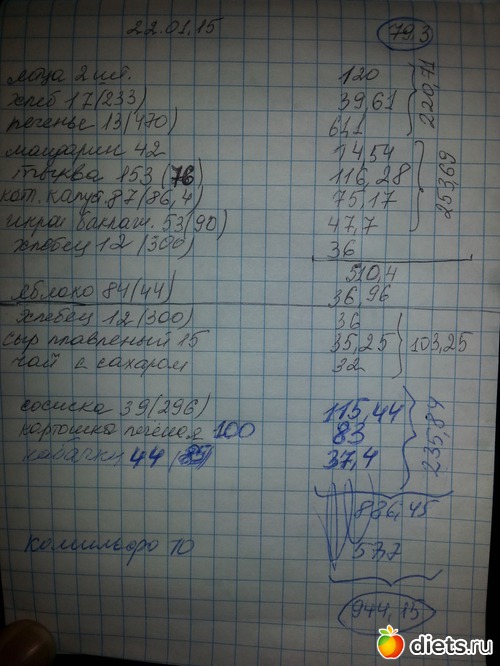 22.01.15 79,3
яйца 2 шт. 120
хлеб 17 (233) 39,61
печенье 13 (470) 61,1
220,71
мандарин 42 14,54
тыква 153 (76) 116,28
кот. капуст 87 (86,4) 75,17
икра баклаж. 53 (90) 47,7
хлебец 12 (300) 36
253,69
510,4
яблоко 84 (44) 36,96
хлебец 12 (300) 36
сыр плавленый 15 35,25
чай с сахаром 32
103,25
сосиска 39 (296) 115,44
картошка печёная 100 83
кабачки 44 (85) 37,4
235,84
886,45
комильфо 10 57,7
944,15
diets.ru